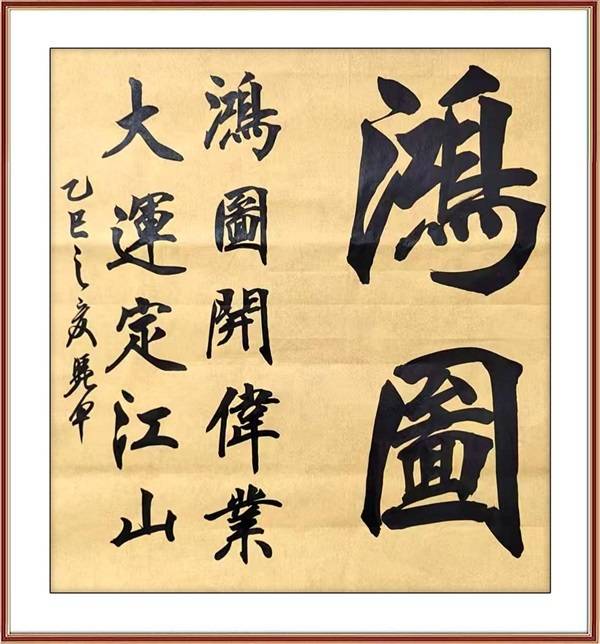 鴻圖
鴻圖開偉業
大運定江山
乙巳之夏